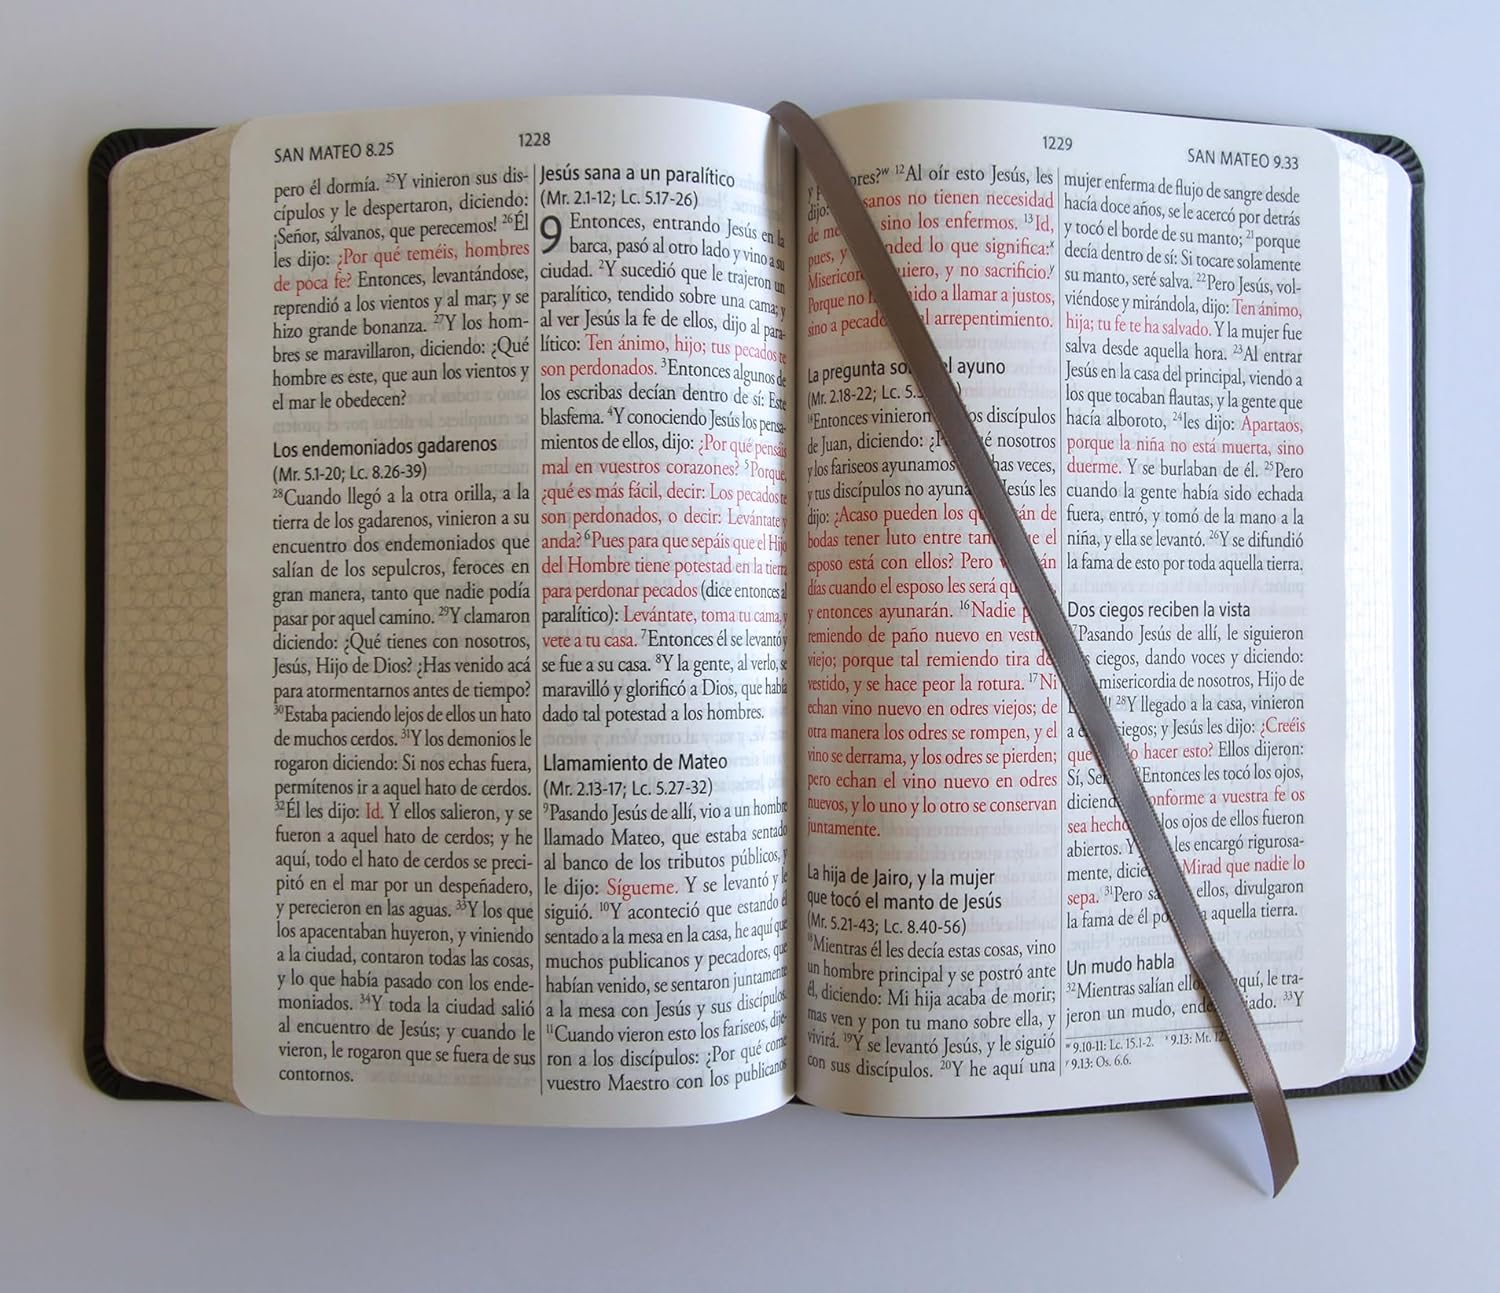 SAN MATEO 8.25
1228
pero él dormía. 25Y vinieron sus dis-
cípulos y le despertaron, diciendo:
¡Señor, sálvanos, que perecemos! 26Él
les dijo: ¿Por qué teméis, hombres
de poca fe? Entonces, levantándose,
reprendió a los vientos y al mar; y se
hizo grande bonanza. 27Y los hom-
bres se maravillaron, diciendo: ¿Qué
hombre es este, que aun los vientos y
el mar le obedecen?
Los endemoniados gadarenos
(Mr. 5.1-20; Lc. 8.26-39)
28Cuando llegó a la otra orilla, a la
tierra de los gadarenos, vinieron a su
encuentro dos endemoniados que
salían de los sepulcros, feroces en
gran manera, tanto que nadie podía
pasar por aquel camino. 29Y clamaron
diciendo: ¿Qué tienes con nosotros,
Jesús, Hijo de Dios? ¿Has venido acá
para atormentarnos antes de tiempo?
30Estaba paciendo lejos de ellos un hato
de muchos cerdos. 31Y los demonios le
rogaron diciendo: Si nos echas fuera,
permítenos ir a aquel hato de cerdos.
32Él les dijo: Id. Y ellos salieron, y se
fueron a aquel hato de cerdos; y he
aquí, todo el hato de cerdos se preci-
pitó en el mar por un despeñadero,
y perecieron en las aguas. 33Y los que
los apacentaban huyeron, y viniendo
a la ciudad, contaron todas las cosas,
y lo que había pasado con los ende-
moniados. 34Y toda la ciudad salió
al encuentro de Jesús; y cuando le
vieron, le rogaron que se fuera de sus
contornos.
Jesús sana a un paralítico
(Mr. 2.1-12; Lc. 5.17-26)
9 Entonces, entrando Jesús en la
barca, pasó al otro lado y vino a su
ciudad. 2Y sucedió que le trajeron un
paralítico, tendido sobre una cama; y
al ver Jesús la fe de ellos, dijo al para-
lítico: Ten ánimo, hijo; tus pecados te
son perdonados. 3Entonces algunos de
los escribas decían dentro de sí: Este
blasfema. 4Y conociendo Jesús los pensa-
mientos de ellos, dijo: ¿Por qué pensáis
mal en vuestros corazones? 5Porque,
¿qué es más fácil, decir: Los pecados te
son perdonados, o decir: Levántate y
anda? 6Pues para que sepáis que el Hijo
del Hombre tiene potestad en la tierra
para perdonar pecados (dice entonces al
paralítico): Levántate, toma tu cama, y
vete a tu casa. 7Entonces él se levantó y
se fue a su casa. 8Y la gente, al verlo, se
maravilló y glorificó a Dios, que había
dado tal potestad a los hombres.
Llamamiento de Mateo
(Mr. 2.13-17; Lc. 5.27-32)
9Pasando Jesús de allí, vio a un hombre
llamado Mateo, que estaba sentado
al banco de los tributos públicos, y
le dijo: Sígueme. Y se levantó y le
siguió. 10Y aconteció que estando él
sentado a la mesa en la casa, he aquí que
muchos publicanos y pecadores, que
habían venido, se sentaron juntamente
a la mesa con Jesús y sus discípulos.
11Cuando vieron esto los fariseos, dije-
ron a los discípulos: ¿Por qué come
vuestro Maestro con los publicanos
1229
SAN MATEO 9.33
y ores?w 12Al oír esto Jesús, les
dijo: sanos no tienen necesidad
de sino los enfermos. 13Id,
pues, y ended lo que significa:x
Misericor uiero, y no sacrificio.y
Porque no ido a llamar a justos,
sino a pecado al arrepentimiento.
La pregunta so el ayuno
(Mr. 2.18-22; Lc. 5.
14Entonces vinieron os discípulos
de Juan, diciendo: ¿P é nosotros
y los fariseos ayunamos has veces,
y tus discípulos no ayuna Jesús les
dijo: ¿Acaso pueden los q án de
bodas tener luto entre tan e el
esposo está con ellos? Pero án
días cuando el esposo les será qu
y entonces ayunarán. 16Nadie p
remiendo de paño nuevo en vesti
viejo; porque tal remiendo tira de
vestido, y se hace peor la rotura. 17Ni
echan vino nuevo en odres viejos; de
otra manera los odres se rompen, y el
vino se derrama, y los odres se pierden;
pero echan el vino nuevo en odres
nuevos, y lo uno y lo otro se conservan
juntamente.
La hija de Jairo, y la mujer
que tocó el manto de Jesús
(Mr. 5.21-43; Lc. 8.40-56)
18Mientras él les decía estas cosas, vino
un hombre principal y se postró ante
él, diciendo: Mi hija acaba de morir;
mas ven y pon tu mano sobre ella, y
vivirá. 19Y se levantó Jesús, y le siguió
con sus discípulos. 20Y he aquí una
mujer enferma de flujo de sangre desde
hacía doce años, se le acercó por detrás
y tocó el borde de su manto; 21porque
decía dentro de sí: Si tocare solamente
su manto, seré salva. 22Pero Jesús, vol-
viéndose y mirándola, dijo: Ten ánimo,
hija; tu fe te ha salvado. Y la mujer fue
salva desde aquella hora. 23Al entrar
Jesús en la casa del principal, viendo a
los que tocaban flautas, y la gente que
hacía alboroto, 24les dijo: Apartaos,
porque la niña no está muerta, sino
duerme. Y se burlaban de él. 25Pero
cuando la gente había sido echada
fuera, entró, y tomó de la mano a la
niña, y ella se levantó. 26Y se difundió
la fama de esto por toda aquella tierra.
Dos ciegos reciben la vista
Pasando Jesús de allí, le siguieron
ciegos, dando voces y diciendo:
misericordia de nosotros, Hijo de
28Y llegado a la casa, vinieron
a iegos; y Jesús les dijo: ¿Creéis
que o hacer esto? Ellos dijeron:
Sí, Se Entonces les tocó los ojos,
diciend onforme a vuestra fe os
sea hecho los ojos de ellos fueron
abiertos. Y les encargó rigurosa-
mente, dicie Mirad que nadie lo
sepa. 31Pero sa ellos, divulgaron
la fama de él po a aquella tierra.
Un mudo habla
32Mientras salían ello aquí, le tra-
jeron un mudo, ende iado. 33Y
w 9.10-11: Lc. 15.1-2. x 9.13: Mt. 12.
y 9.13: Os. 6.6.